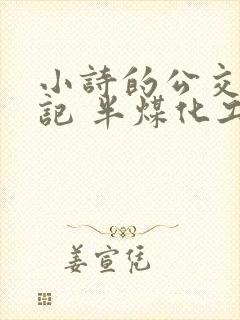 小詩的公交
記 半煤化工
姜宣凭